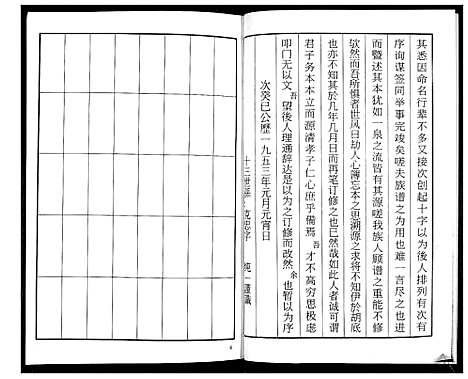 其悉因命名行辈不多又接次创起十字以为後人排列有次有
序询谋签同举事完竣矣嗟夫族谱之为用也难一言尽之也进
而暨述其本犹如一泉之流皆有其源嗟我族人顾谱之重能不修
欤然而吾所惧者世风日劫人心薄忘本之思溯源之求将不知伊於胡底
亦不知其於几年几月日而再笔订修之也已然哉如此人者诚可谓
君子务本本立而源清孝子仁心庶乎备焉吾才不高穷思极虑
叩门无以文吾望後人理通辞达是以为之订修而改然余也暂以为序
次癸巳公历一九五三年元月元宵日
十三世孙 克忠字 纯一谨识